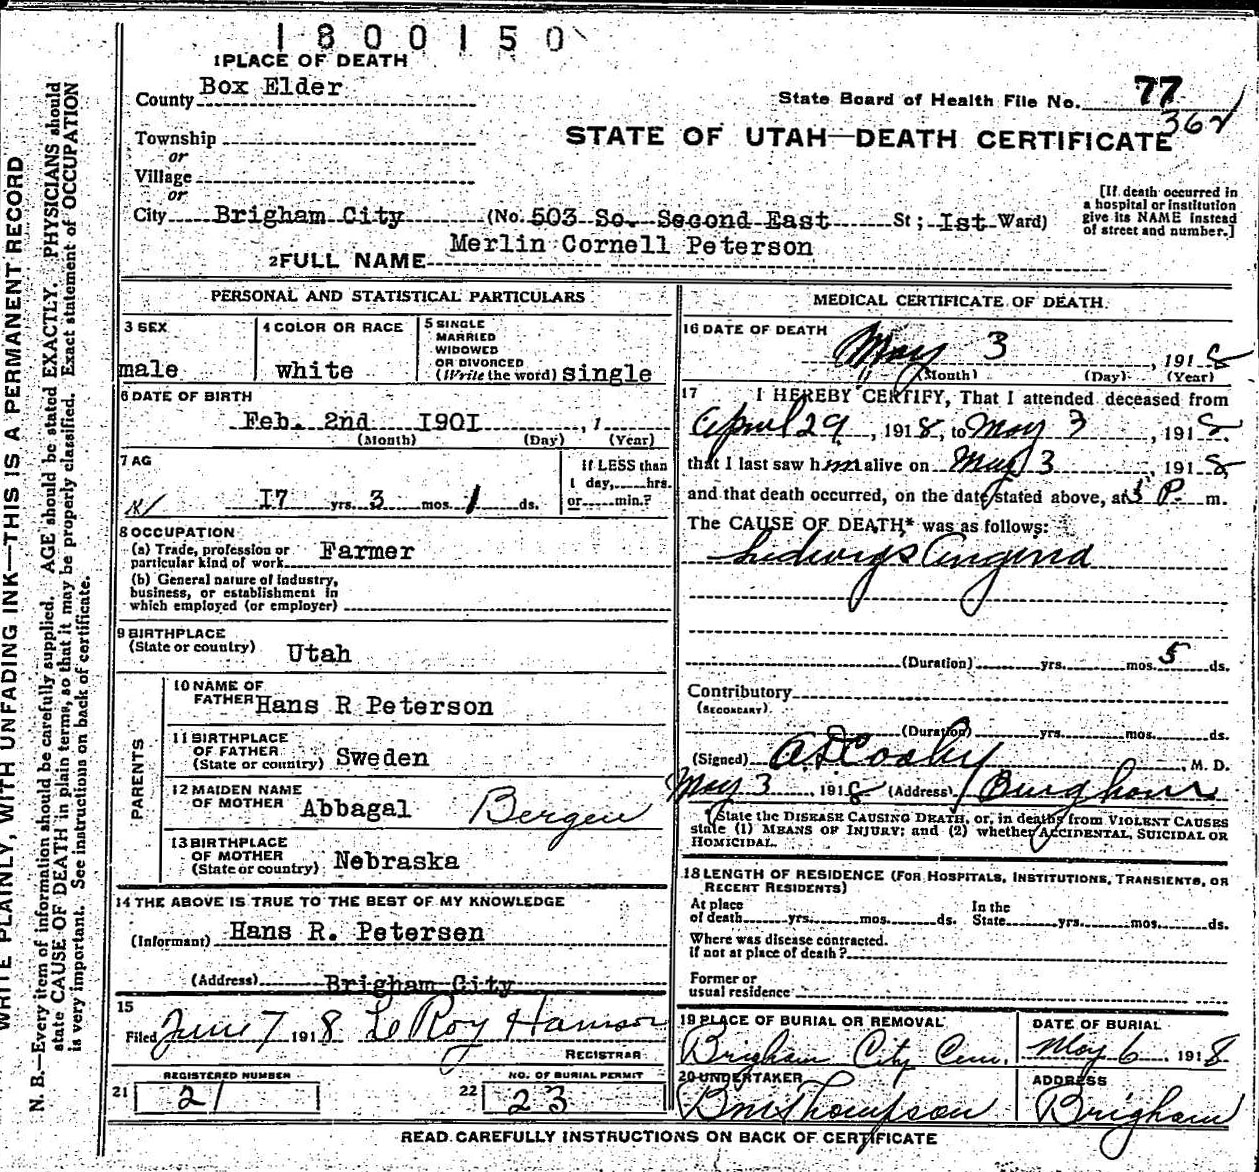 1800150
1 PLACE OF DEATH
County Box Elder
State Board of Health File No. 77
362
Township
or
Village
or
STATE OF UTAH—DEATH CERTIFICATE
City Brigham City (No. 503 So. Second East St; Ist Ward)
[If death occurred in
a hospital or institution
give its NAME instead
of street and number.]
2 FULL NAME Merlin Cornell Peterson
PERSONAL AND STATISTICAL PARTICULARS
3 SEX
male
4 COLOR OR RACE
white
5 SINGLE
MARRIED
WIDOWED
OR DIVORCED
(Write the word) single
6 DATE OF BIRTH
Feb. 2nd I90I , 1
(Month) (Day) (Year)
7 AG
I7 yrs. 3 mos. 1 ds.
If LESS than
1 day, hrs.
or min.?
8 OCCUPATION
(a) Trade, profession or
particular kind of work Farmer
(b) General nature of industry,
business, or establishment in
which employed (or employer)
9 BIRTHPLACE
(State or country) Utah
PARENTS
10 NAME OF
FATHER Hans R Peterson
11 BIRTHPLACE
OF FATHER
(State or country) Sweden
12 MAIDEN NAME
OF MOTHER Abbagal Bergen
13 BIRTHPLACE
OF MOTHER
(State or country) Nebraska
14 THE ABOVE IS TRUE TO THE BEST OF MY KNOWLEDGE
(Informant) Hans R. Petersen
(Address) Brigham City
15
Filed June 7 1918 Le Roy Hanson
REGISTRAR
REGISTERED NUMBER
21 21
NO. OF BURIAL PERMIT
22 23
MEDICAL CERTIFICATE OF DEATH
16 DATE OF DEATH
May 3 , 1918
(Month) (Day) (Year)
17 I HEREBY CERTIFY, That I attended deceased from
April 29 , 1918, to May 3 , 1918
that I last saw him alive on May 3 , 1918
and that death occurred, on the date stated above, at 5 P. m.
The CAUSE OF DEATH* was as follows:
Ludwigs Angina
(Duration) yrs. mos. 5 ds.
Contributory
(SECONDARY)
(Duration) yrs. mos. ds.
(Signed) A D Cooley , M. D.
May 3 , 1918 (Address) Brigham
State the DISEASE CAUSING DEATH, or, in deaths from VIOLENT CAUSES
state (1) MEANS OF INJURY; and (2) whether ACCIDENTAL, SUICIDAL OR
HOMICIDAL.
18 LENGTH OF RESIDENCE (FOR HOSPITALS, INSTITUTIONS, TRANSIENTS, OR
RECENT RESIDENTS)
At place
of death yrs. mos. ds.
In the
State yrs. mos. ds.
Where was disease contracted.
If not at place of death?
Former or
usual residence
19 PLACE OF BURIAL OR REMOVAL
Brigham City Cem.
DATE OF BURIAL
May 6 . 1918
20 UNDERTAKER
B M Thompson
ADDRESS
Brigham
READ CAREFULLY INSTRUCTIONS ON BACK OF CERTIFICATE
WRITE PLAINLY, WITH UNFADING INK—THIS IS A PERMANENT RECORD
N. B.—Every item of information should be carefully supplied. AGE should be stated EXACTLY. PHYSICIANS should
state CAUSE OF DEATH in plain terms, so that it may be properly classified. Exact statement of OCCUPATION
is very important. See instructions on back of certificate.